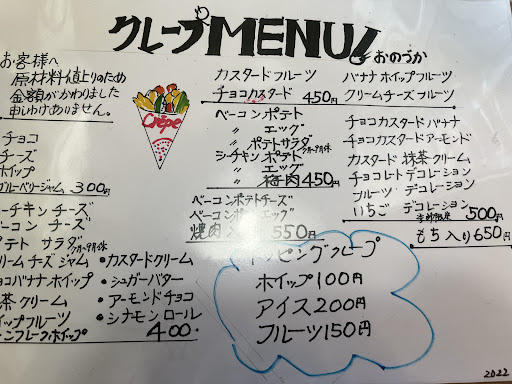 クレープMENU!
おのづか
お客様へ
原材料値上りのため
金額がかわりました
申しわけありません。
Crêpe
チョコ
チーズ
ホイップ
ブルーベリージャム 300円
ーチキン チーズ
ーコン チーズ
ポテト サラダ
リームチーズ ジャム
ョコバナナ ホイップ
茶 クリーム
イップフルーツ
ーンフレーク・ホイップ
・カスタードクリーム
・シュガーバター
・アーモンドチョコ
・シナモン ロール
400-
カスタードフルーツ
チョコカスタード 450円
ベーコンポテト
〃 エッグ
〃 ポテトサラダ
シーチキン ポテト
〃 エッグ
〃 梅肉 450円
ベーコンポテトチーズ
ベーコン エッグ
焼肉 550円
バナナ ホイップフルーツ
クリームチーズフルーツ
チョコカスタード バナナ
チョコカスタード アーモンド
カスタード 抹茶 クリーム
チョコレート デコレーション
フルーツ デコレーション
いちご デコレーション
500円
もち入り650円
トッピングクレープ
ホイップ100円
アイス200円
フルーツ150円
2022